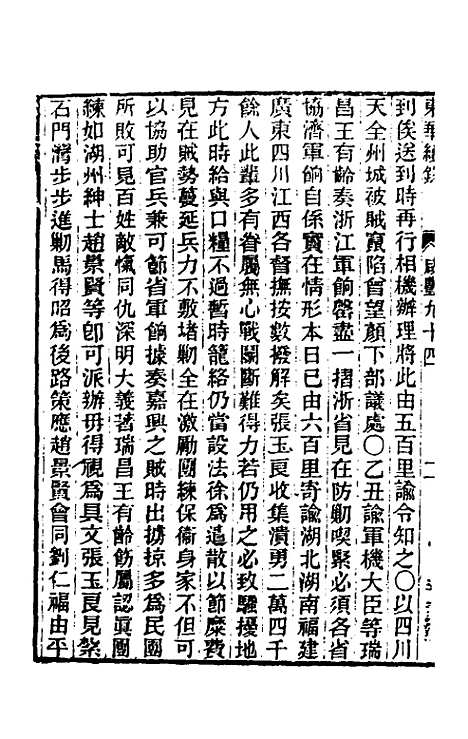 東華續錄　咸豐九十四　二
到俟送到時再行相機辦理將此由五百里諭令知之○以四川
天全州城被賊竄陷曾望顏下部議處○乙丑諭軍機大臣等瑞
昌王有齡奏浙江軍餉罄盡一摺浙省見在防勦喫緊必須各省
協濟軍餉自係實在情形本日已由六百里寄諭湖北湖南福建
廣東四川江西各督撫按數撥解矣張玉良收集潰勇二萬四千
餘人此輩多有眷屬無心戰鬭斷難得力若仍用之必致騷擾地
方此時給與口糧不過暫時籠絡仍當設法徐爲遣散以節糜費
見在賊勢蔓延兵力不敷堵勦全在激勵團練保衞身家不但可
以協助官兵兼可節省軍餉據奏嘉興之賊時出擄掠多爲民團
所敗可見百姓敵愾同仇深明大義著瑞昌王有齡飭屬認眞團
練如湖州紳士趙景賢等卽可派辦毋得視爲具文張玉良見紮
石門灣步步進勦馬得昭爲後路策應趙景賢會同劉仁福由平